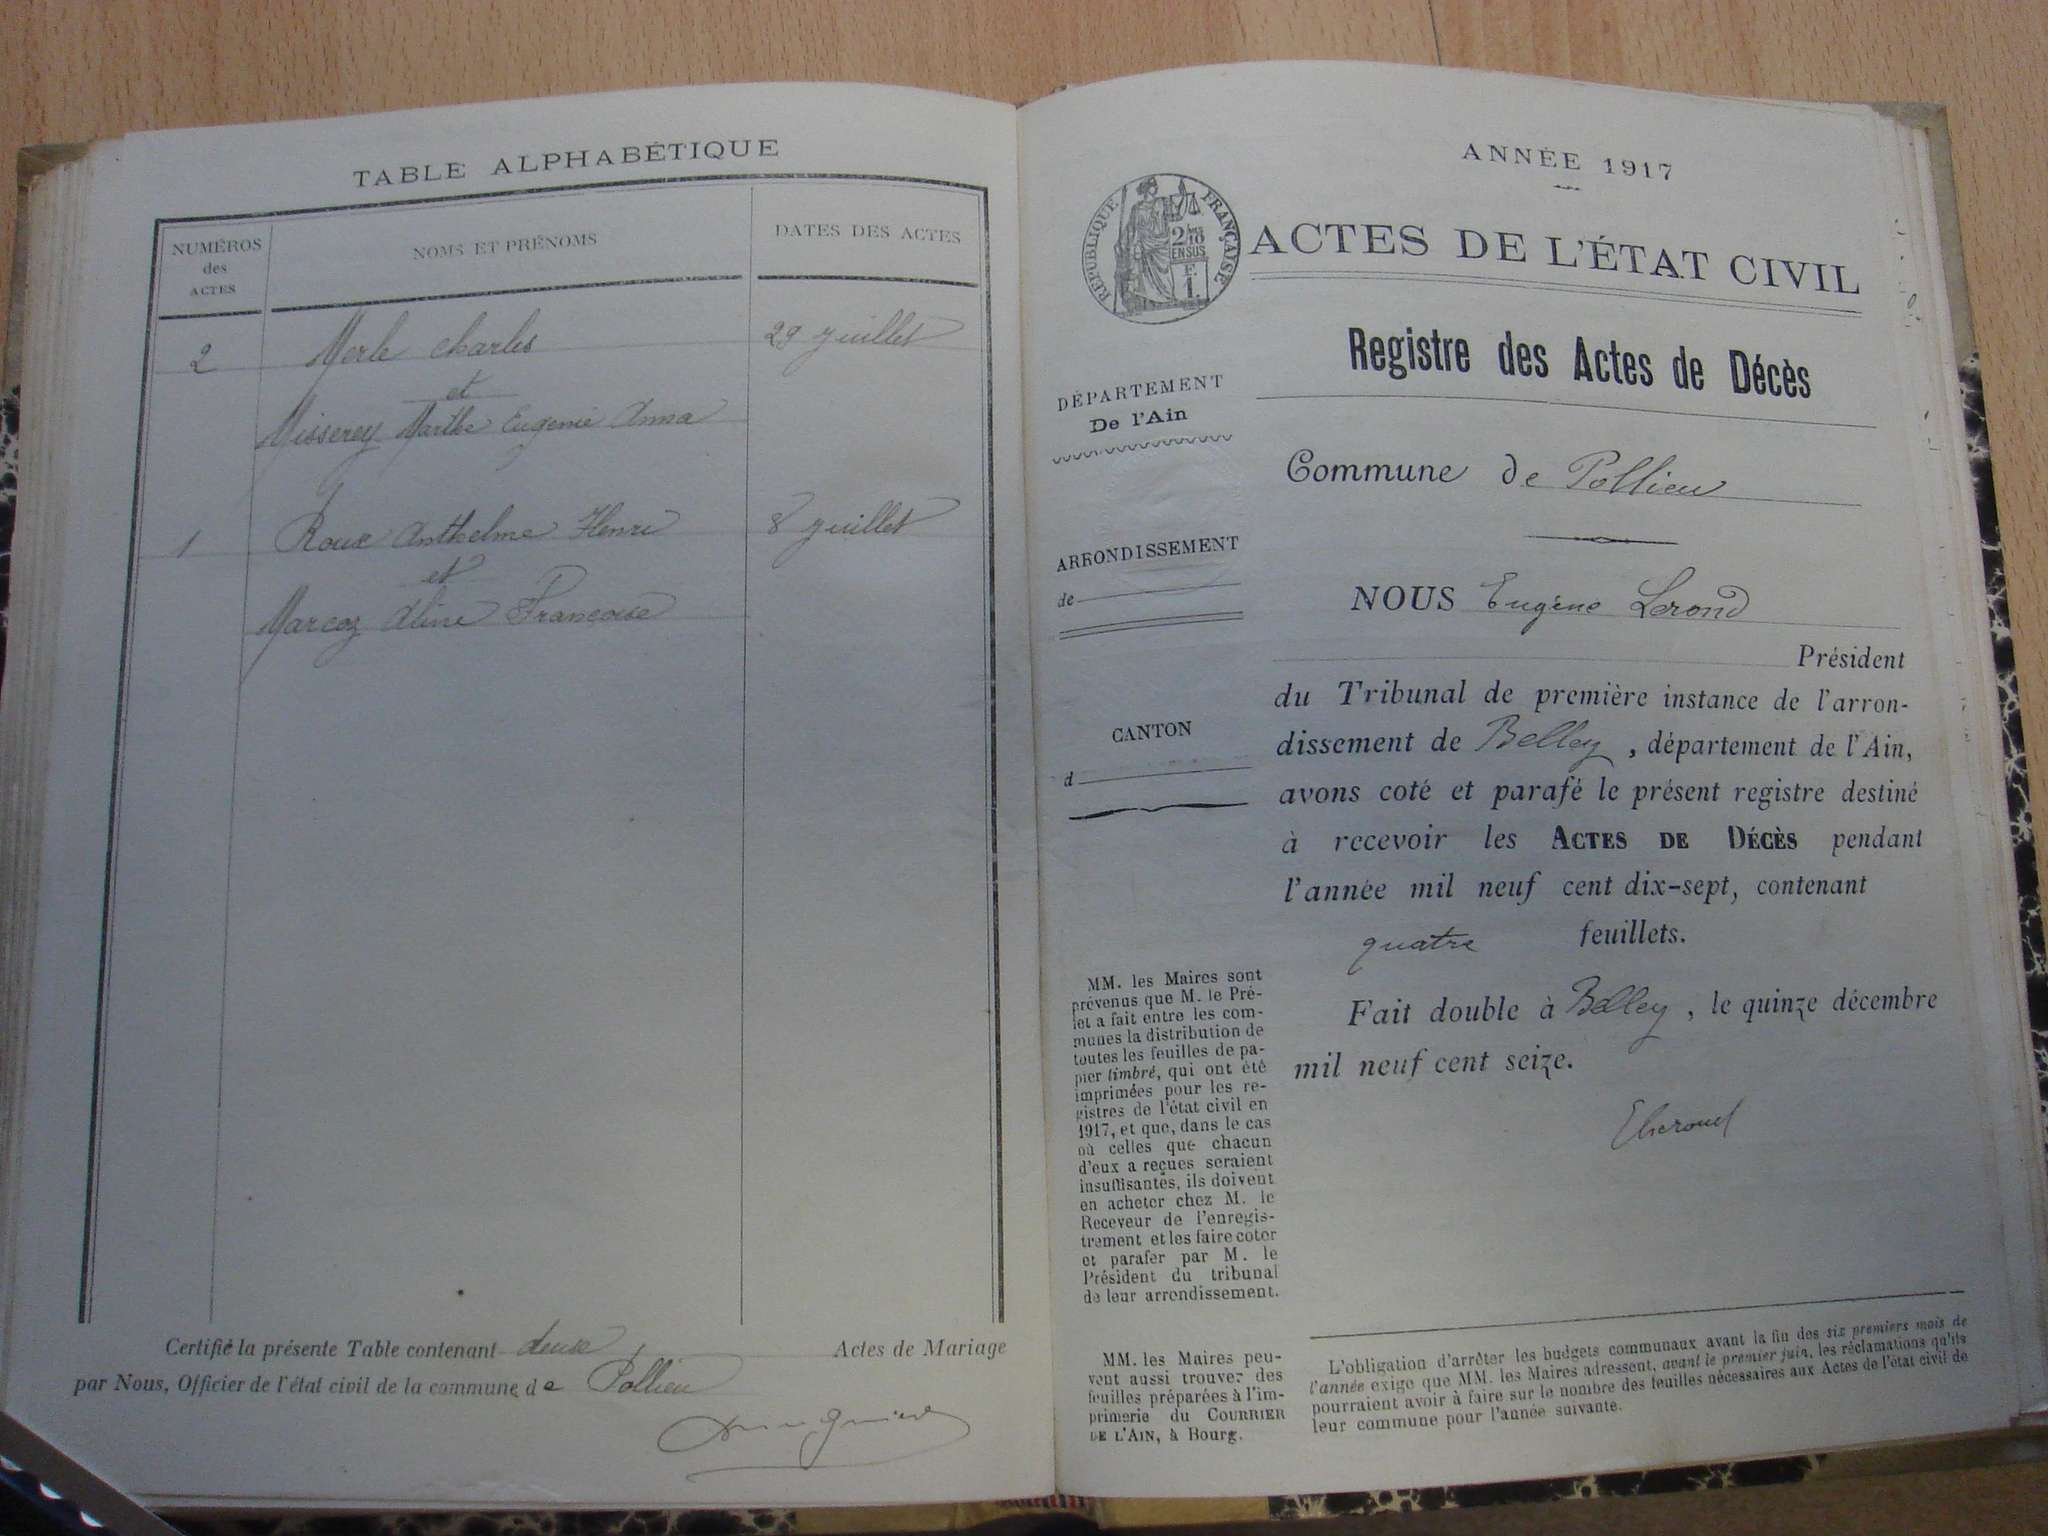 TABLE ALPHABÉTIQUE
NUMÉROS
des
ACTES
NOMS ET PRÉNOMS
DATES DES ACTES
2
Merle Charles
29 juillet
et
Misserey Marthe Eugénie Anna
1
Roux Anthelme Henri
8 juillet
et
Marcoz Aline Françoise
Certifié la présente Table contenant deux Actes de Mariage
par Nous, Officier de l'état civil de la commune de Pollieu
ANNÉE 1917
RÉPUBLIQUE FRANÇAISE
2/10
EN SUS
F.
1.
ACTES DE L'ÉTAT CIVIL
Registre des Actes de Décès
DÉPARTEMENT
De l'Ain
ARRONDISSEMENT
de
CANTON
d
Commune de Pollieu
NOUS Eugène Lerond
Président
du Tribunal de première instance de l'arron-
dissement de Belley, département de l'Ain,
avons coté et parafé le présent registre destiné
à recevoir les ACTES DE DÉCÈS pendant
l'année mil neuf cent dix-sept, contenant
quatre feuillets.
Fait double à Belley, le quinze décembre
mil neuf cent seize.
MM. les Maires sont
prévenus que M. le Pré-
fet a fait entre les com-
munes la distribution de
toutes les feuilles de pa-
pier timbré, qui ont été
imprimées pour les re-
gistres de l'état civil en
1917, et que, dans le cas
où celles que chacun
d'eux a reçues seraient
insuffisantes, ils doivent
en acheter chez M. le
Receveur de l'enregis-
trement et les faire coter
et parafer par M. le
Président du tribunal
de leur arrondissement.
MM. les Maires peu-
vent aussi trouver des
feuilles préparées à l'im-
primerie du COURRIER
DE L'AIN, à Bourg.
L'obligation d'arrêter les budgets communaux avant la fin des six premiers mois de
l'année exige que MM. les Maires adressent, avant le premier juin, les réclamations qu'ils
pourraient avoir à faire sur le nombre des feuilles nécessaires aux Actes de l'état civil de
leur commune pour l'année suivante.